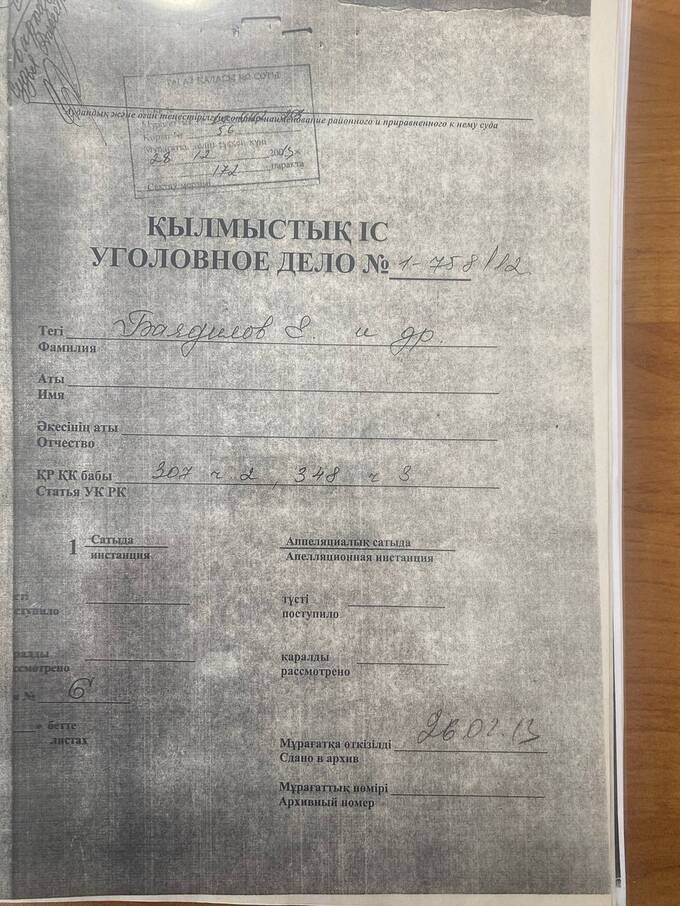 ТАРАЗ ҚАЛАСЫ №2 СОТЫ
56
28 12 2013ж
172 парақта
Сақтау мерзімі
наименование районного и приравненного к нему суда
ҚЫЛМЫСТЫҚ ІС
УГОЛОВНОЕ ДЕЛО № 1-758/12
Тегі
Фамилия
Баядилов и др.
Аты
Имя
Әкесінің аты
Отчество
ҚР ҚК бабы 307 ч 2, 348 ч 3
Статья УК РК
1 Сатыда
инстанция
Аппеляциалық сатыда
Апелляционная инстанция
түсті
поступило
ступило
қаралды
рассмотрено
ралды
ссмотрено
№ 6
бетте
листах
Мұрағатқа өткізілді 26.02.13
Сдано в архив
Мұрағаттық нөмірі
Архивный номер